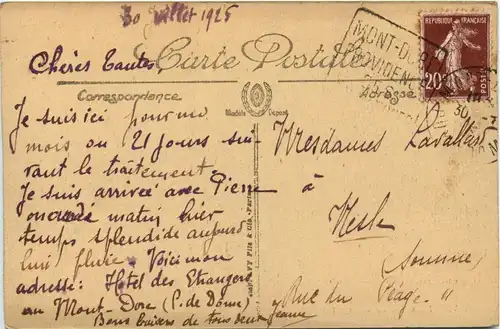 30 Juillet 1925
Chères Tantes,
Carte Postale
Correspondance
Adresse
Modèle Déposé
RÉPUBLIQUE FRANÇAISE
20c
POSTES
MONT-DORE
PROVIDENCE
Je suis ici pour un
mois ou 21 jours sui-
vant le traitement
Je suis arrivée avec Pierre
matin hier
temps splendide aujourd
hui pluie Voici mon
adresse: Hotel des Etrangers
au Mont-Dore (P. de Dôme)
Bons baisers de tous deux Jeanne
Mesdames Lavallard
à
Nesle
(Somme)
Rue du Péage "